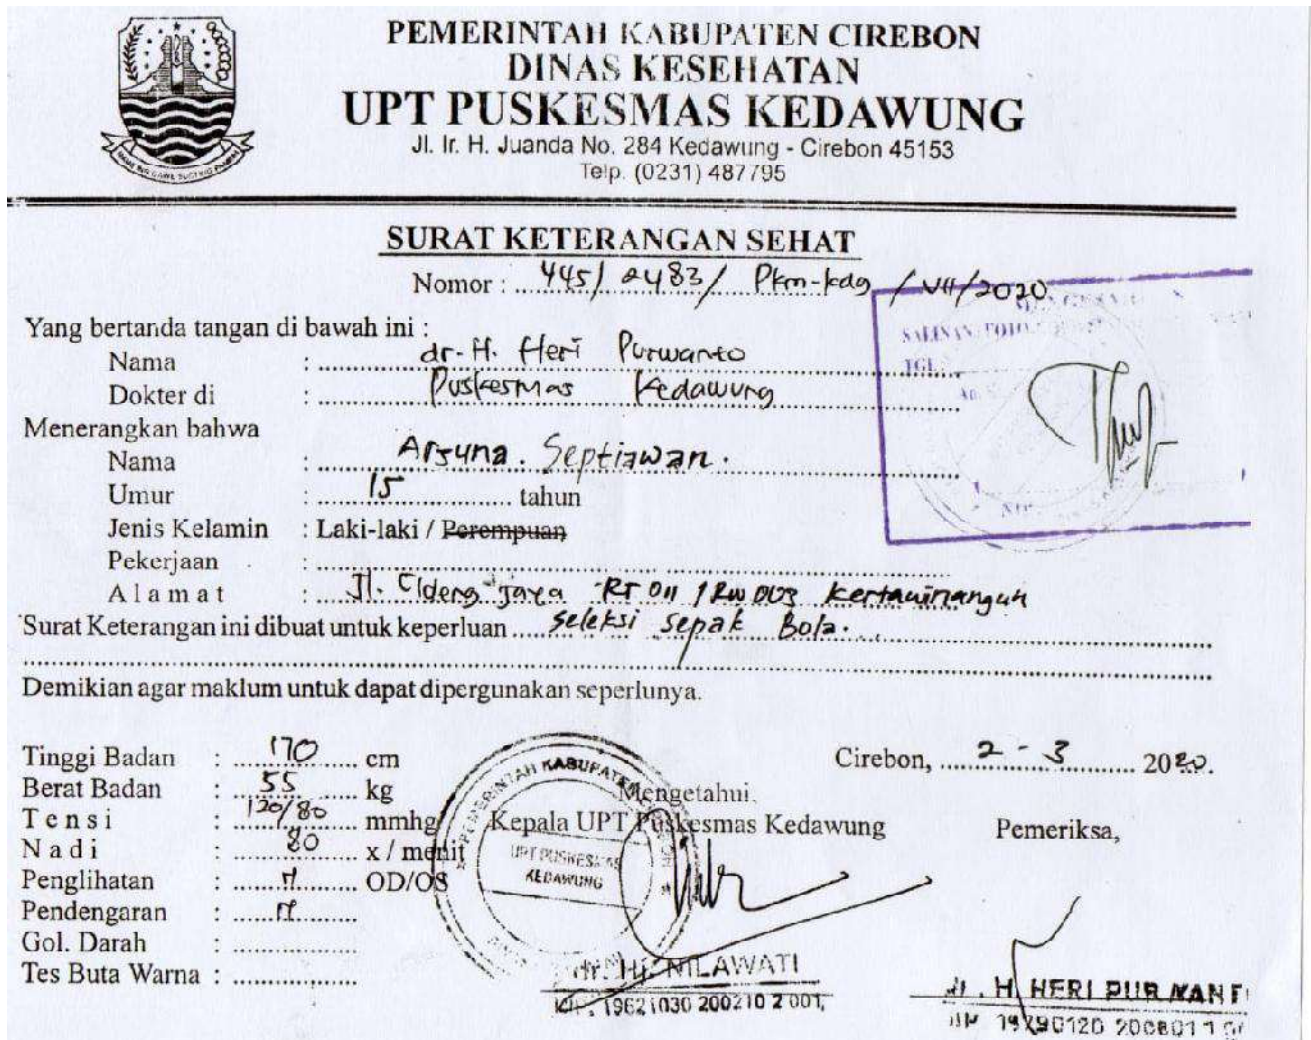 PEMERINTAH KABUPATEN CIREBON
DINAS KESEHATAN
UPT PUSKESMAS KEDAWUNG
Jl. Ir. H. Juanda No. 284 Kedawung - Cirebon 45153
Telp. (0231) 487795
SURAT KETERANGAN SEHAT
Nomor : 445/ 2483/ Pkm-kdg / VII/2020
Yang bertanda tangan di bawah ini :
Nama : dr. H. Heri Purwanto
Dokter di : Puskesmas Kedawung
Menerangkan bahwa
Nama : Arjuna. Septiawan.
Umur : 15 tahun
Jenis Kelamin : Laki-laki / Perempuan
Pekerjaan :
Alamat : Jl. Cideng Jaya RT 011 / RW 003 Kertawinangun
Surat Keterangan ini dibuat untuk keperluan seleksi sepak Bola.
Demikian agar maklum untuk dapat dipergunakan seperlunya.
SALINAN
TGL
Tinggi Badan : 170 cm
Berat Badan : 55 kg
Tensi : 120/80 mmhg
Nadi : 80 x / menit
Penglihatan : N OD/OS
Pendengaran : N
Gol. Darah :
Tes Buta Warna :
Cirebon, 2 - 3 2020.
Mengetahui,
Kepala UPT Puskesmas Kedawung
UPT PUSKESMAS
KEDAWUNG
dr. Hj. NILAWATI
NIP. 19621030 200210 2 001
Pemeriksa,
dr. H. HERI PURWANT